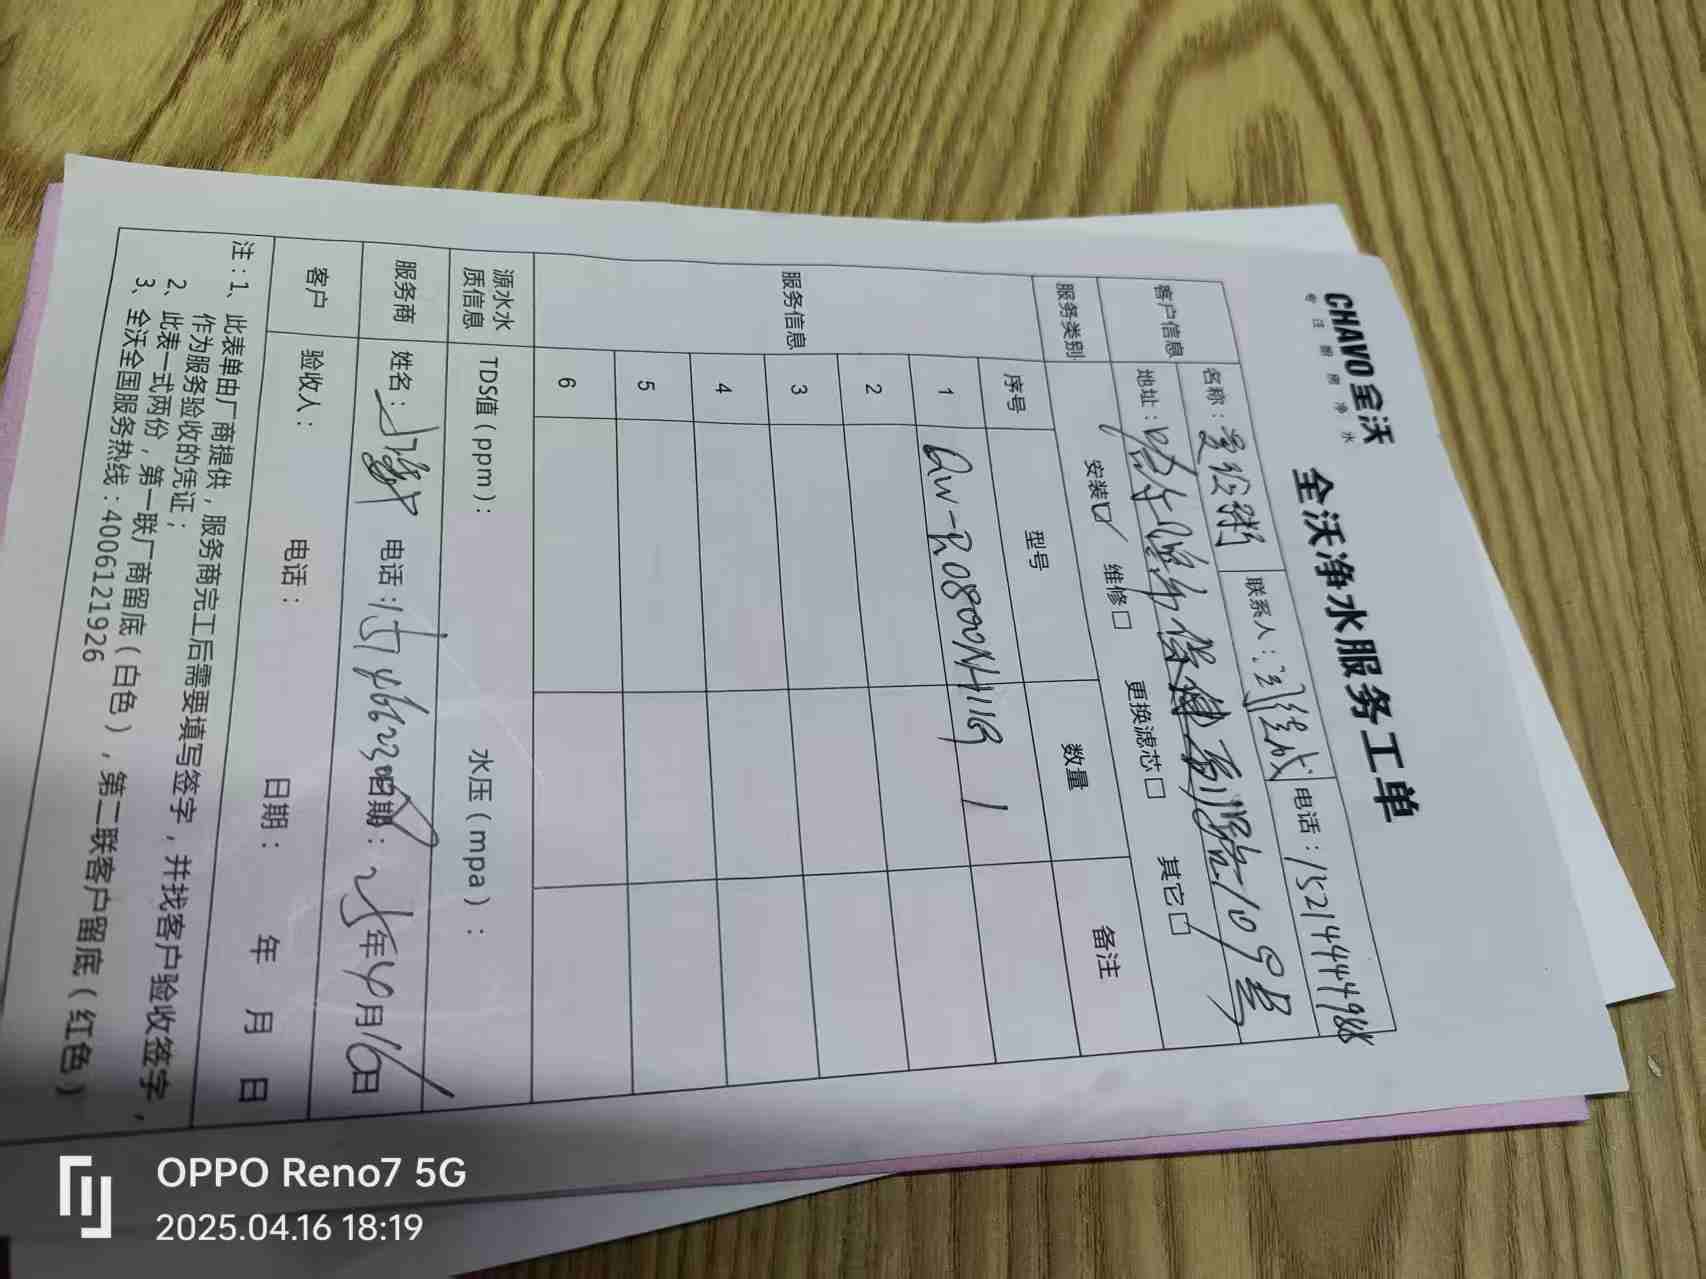 CHAVO 全沃
专注厨房净水
全沃净水服务工单
客户信息 名称： 联系人： 电话：15214444988
地址： 109号
服务类别 安装☑ 维修□ 更换滤芯□ 其它□
服务信息 序号 型号 数量 备注
1 QW-RO800MH11G 1
2
3
4
5
6
源水水质信息 TDS值（ppm）： 水压（mpa）：
服务商 姓名： 电话： 日期：25年4月16日
客户 验收人： 电话： 日期： 年 月 日
注：1、此表单由厂商提供，服务商完工后需要填写签字，并找客户验收签字，
作为服务验收的凭证；
2、此表一式两份，第一联厂商留底（白色），第二联客户留底（红色）
3、全沃全国服务热线：4006121926
OPPO Reno7 5G
2025.04.16 18:19